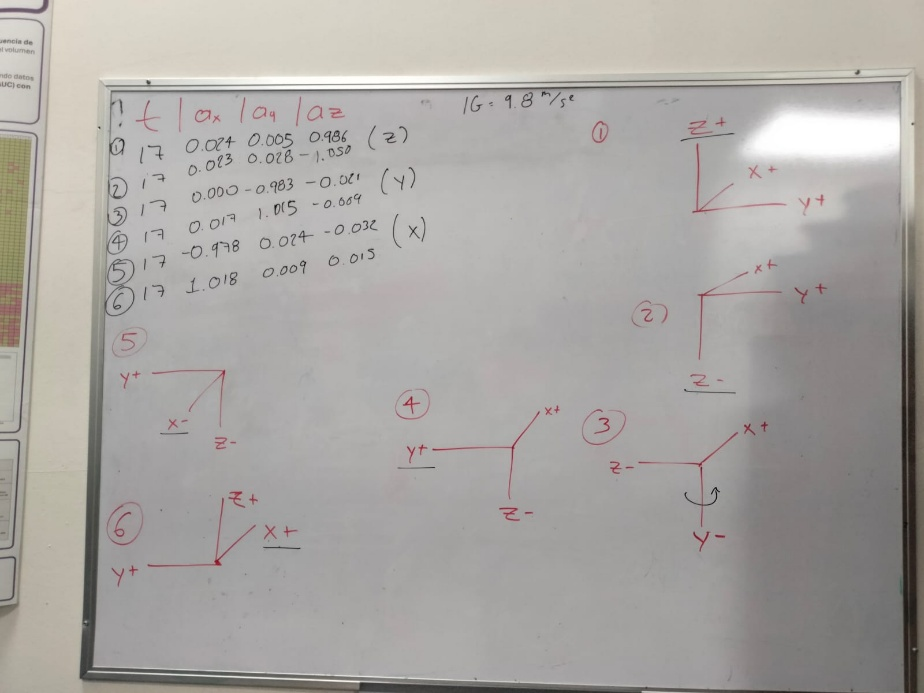 uencia de
el volumen
ndo datos
AUC) con
! t | ax | ay | az
1G = 9.8 m/s²
① 17 0.024 0.005 0.986 (z)
② 17 0.023 0.028 -1.050
③ 17 0.000 -0.983 -0.021 (y)
④ 17 0.017 1.015 -0.009
⑤ 17 -0.978 0.024 -0.032 (x)
⑥ 17 1.018 0.009 0.015
①
z+
x+
y+
②
x+
y+
z-
⑤
y+
x-
z-
④
x+
y+
z-
③
x+
z-
y-
⑥
z+
x+
y+